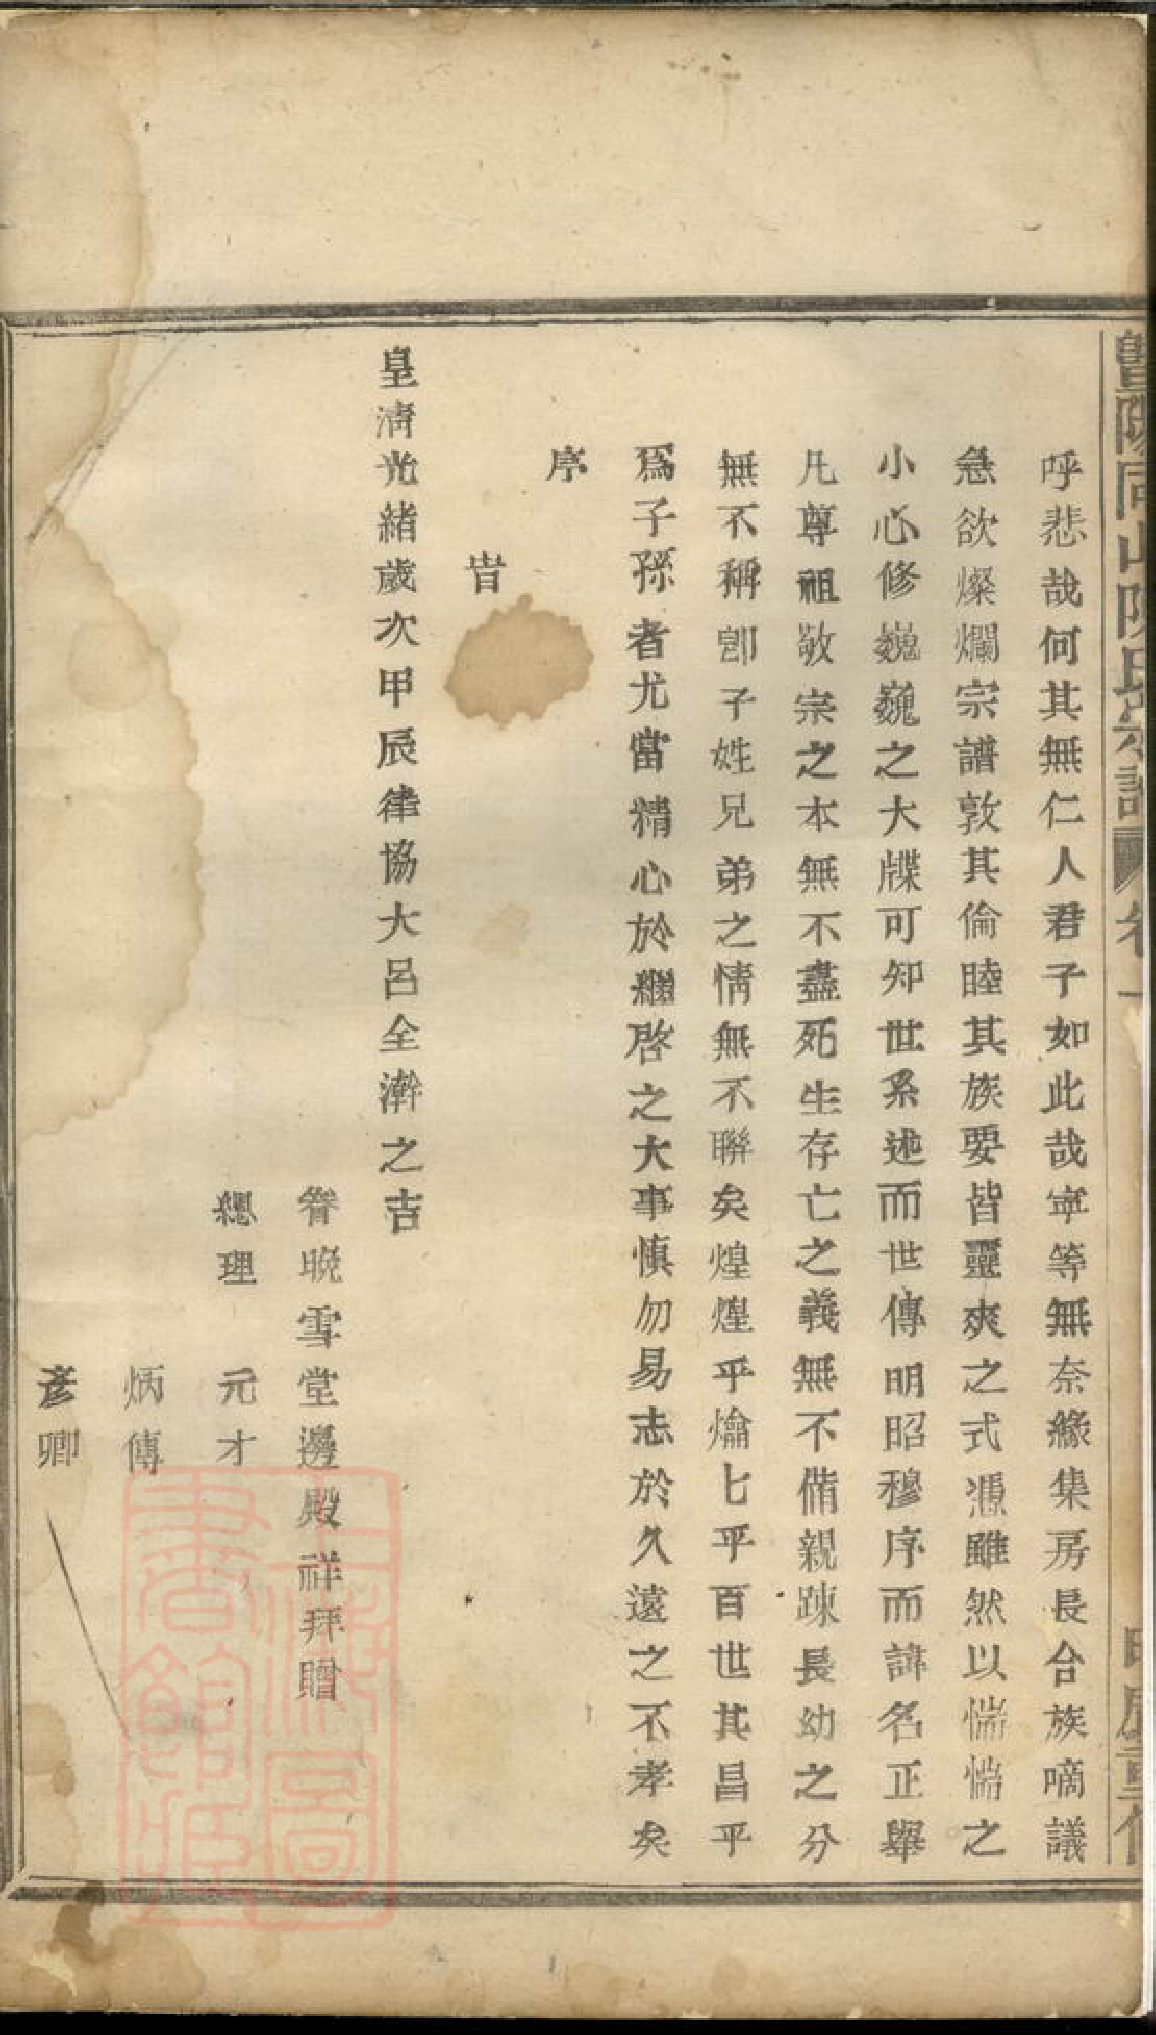 暨陽同山陳氏宗譜 卷一
呼悲哉何其無仁人君子如此哉寧等無奈緣集房長合族啇議
急欲燦爛宗譜敦其倫睦其族要皆靈爽之式憑雖然以惴惴之
小心修巍巍之大牒可知世系述而世傳明昭穆序而諱名正舉
凡尊祖敬宗之本無不盡死生存亡之義無不偹親踈長幼之分
無不稱卽子姓兄弟之情無不聯矣煌煌乎爚匕乎百世其昌乎
爲子孫者尤當精心於繼啓之大事慎勿易志於久遠之不孝矣
序
旹
皇淸光緒歲次甲辰律協大呂全澣之吉
眷晚雪堂邊殿祥拜贈
總理 元才
炳傳
彥卿
上海圖書館藏